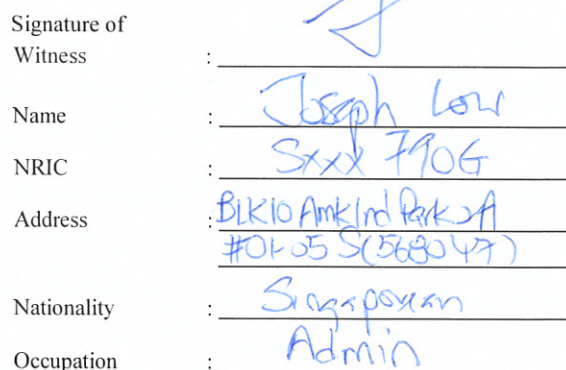 Signature of
Witness :
Name : Joseph Low
NRIC : Sxxx 790G
Address : BLK10 Amk Ind Park 2A
#01-05 S(568047)
Nationality : Singaporean
Occupation : Admin